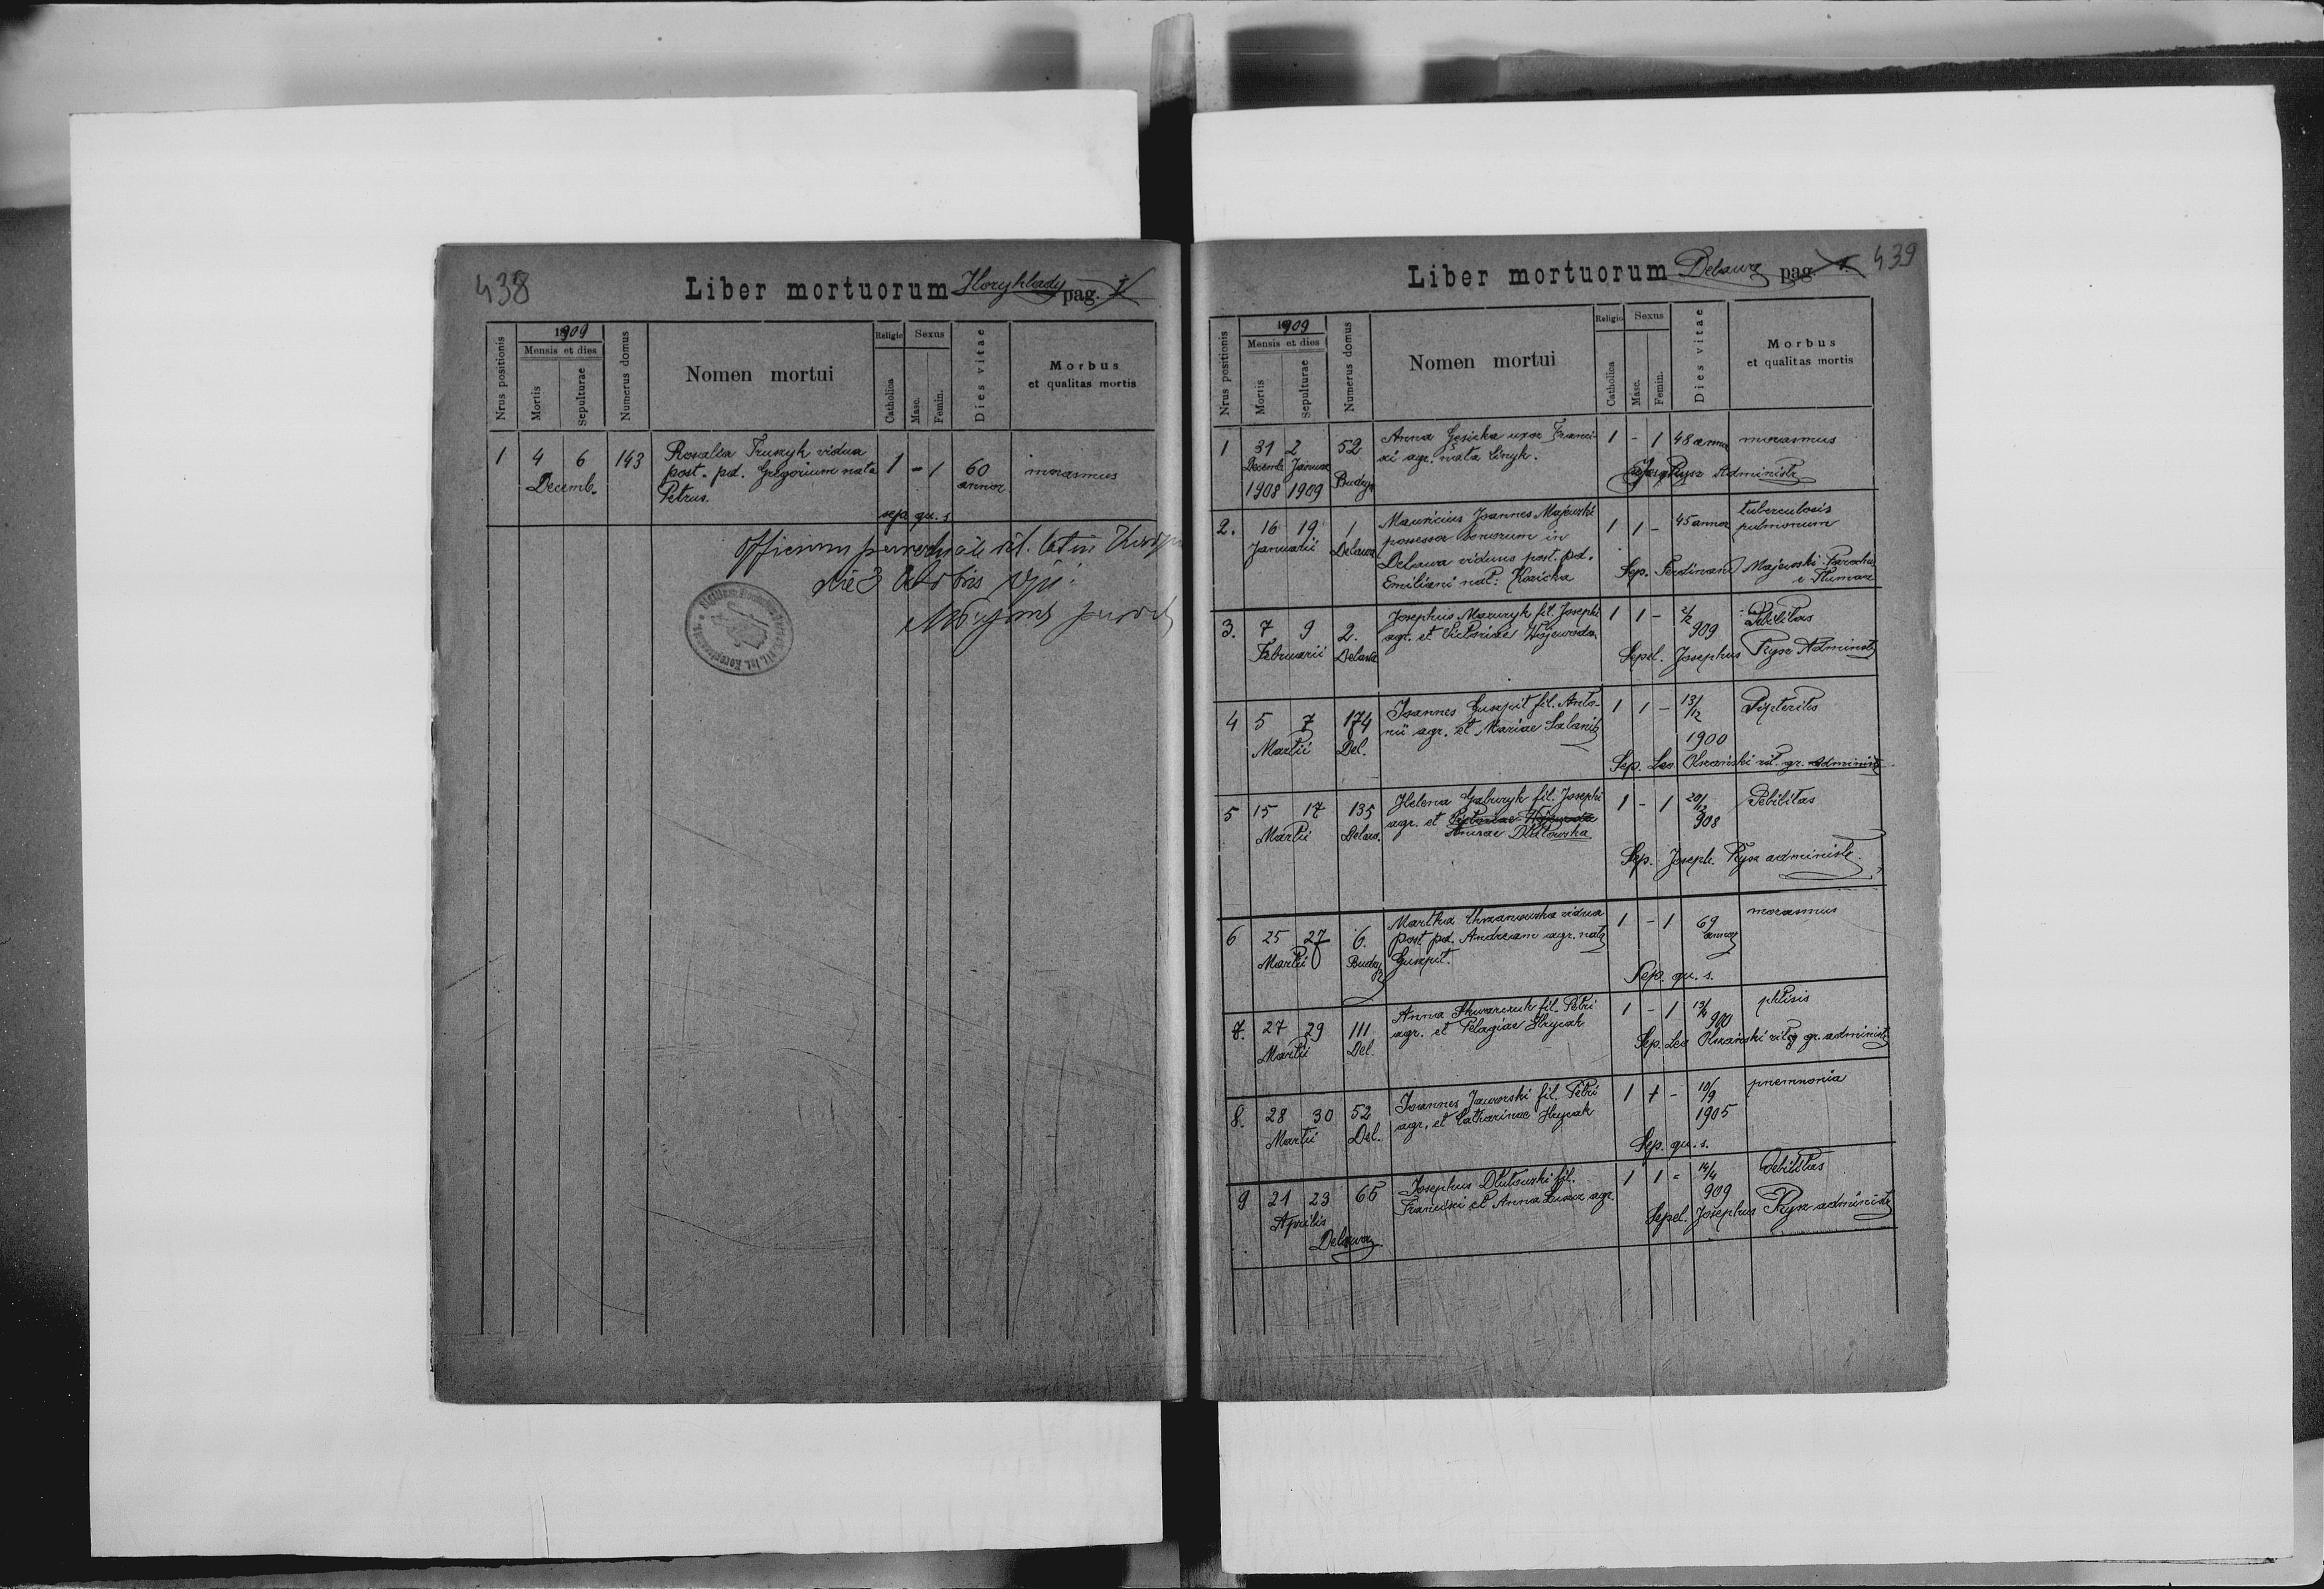 438
Liber mortuorum Horyhlady pag. 1
Nrus positionis
1909
Mensis et dies
Mortis
Sepulturae
Numerus domus
Nomen mortui
Religio
Catholica
Sexus
Masc.
Femin.
Dies vitae
Morbus
et qualitas mortis
1 4 6 143 Rosalia Truszyk vidua 1 - 1 60 marasmus
Decemb. post. pd. Gregorium nata annor
Petrus.
sep. qu. s
Officium parochiale rit. lat. in
die 3
439
Liber mortuorum Delawa pag. 1.
Nrus positionis
1909
Mensis et dies
Mortis
Sepulturae
Numerus domus
Nomen mortui
Religio
Catholica
Sexus
Masc.
Femin.
Dies vitae
Morbus
et qualitas mortis
1 31 2 52 Anna Gęsicka uxor Franci- 1 - 1 48 annor marasmus
Decemb. Januar sci agr. nata
1908 1909 Budzyn Joseph Rysz Administr
2. 16 19 1 Mauricius Joannes Majewski 1 1 - 45 annor tuberculosis
Januarii Delawa possessor bonorum in pulmonum
Delawa viduus post. pd.
Emiliani nat: Kozicka
Sep. Ferdinand Majewski Parochus
e Tłumacz
3. 7 9 2. Josephus Mazuryk fil. Josephi 1 1 - 2/2 909 Debilitas
Februarii Delawa agr. et Victoriae Wojewoda
Sepel. Josephus Rysz Administr
4 5 7 174 Joannes Guszpit fil. Anto- 1 1 - 13/12 1900 Dipteritis
Martii Del. nii agr. et Mariae
Sep. Leo Olszański rit. gr. administr
5 15 17 135 Helena Gabryk fil. Josephi 1 - 1 20/12 908 Debilitas
Martii Delaw. agr. et Victoriae Wojewoda
Annae Dłutowska
Sep. Joseph Rysz administr.
6 25 27 6. Martha Chrzanowska vidua 1 - 1 69 annor marasmus
Martii Budzyn post pd. Andream agr. nata
Guszpit.
Sep. qu. s.
7. 27 29 111 Anna fil. Petri 1 - 1 900 phtisis
Martii Del. agr. et Pelagiae Hrycak
Sep. Leo Olszański rit. gr. administr
8. 28 30 52 Joannes Jaworski fil. Petri 1 1 - 10/9 1905 pnemnonia
Martii Del. agr. et Catharinae Hrycak
Sep. qu. s.
9 21 23 66 Josephus Dłutowski fil. 1 1 - 14/4 909 Debilitas
Aprilis Francisci et Anna agr.
Delawa
Sepel. Josephus Rysz administr